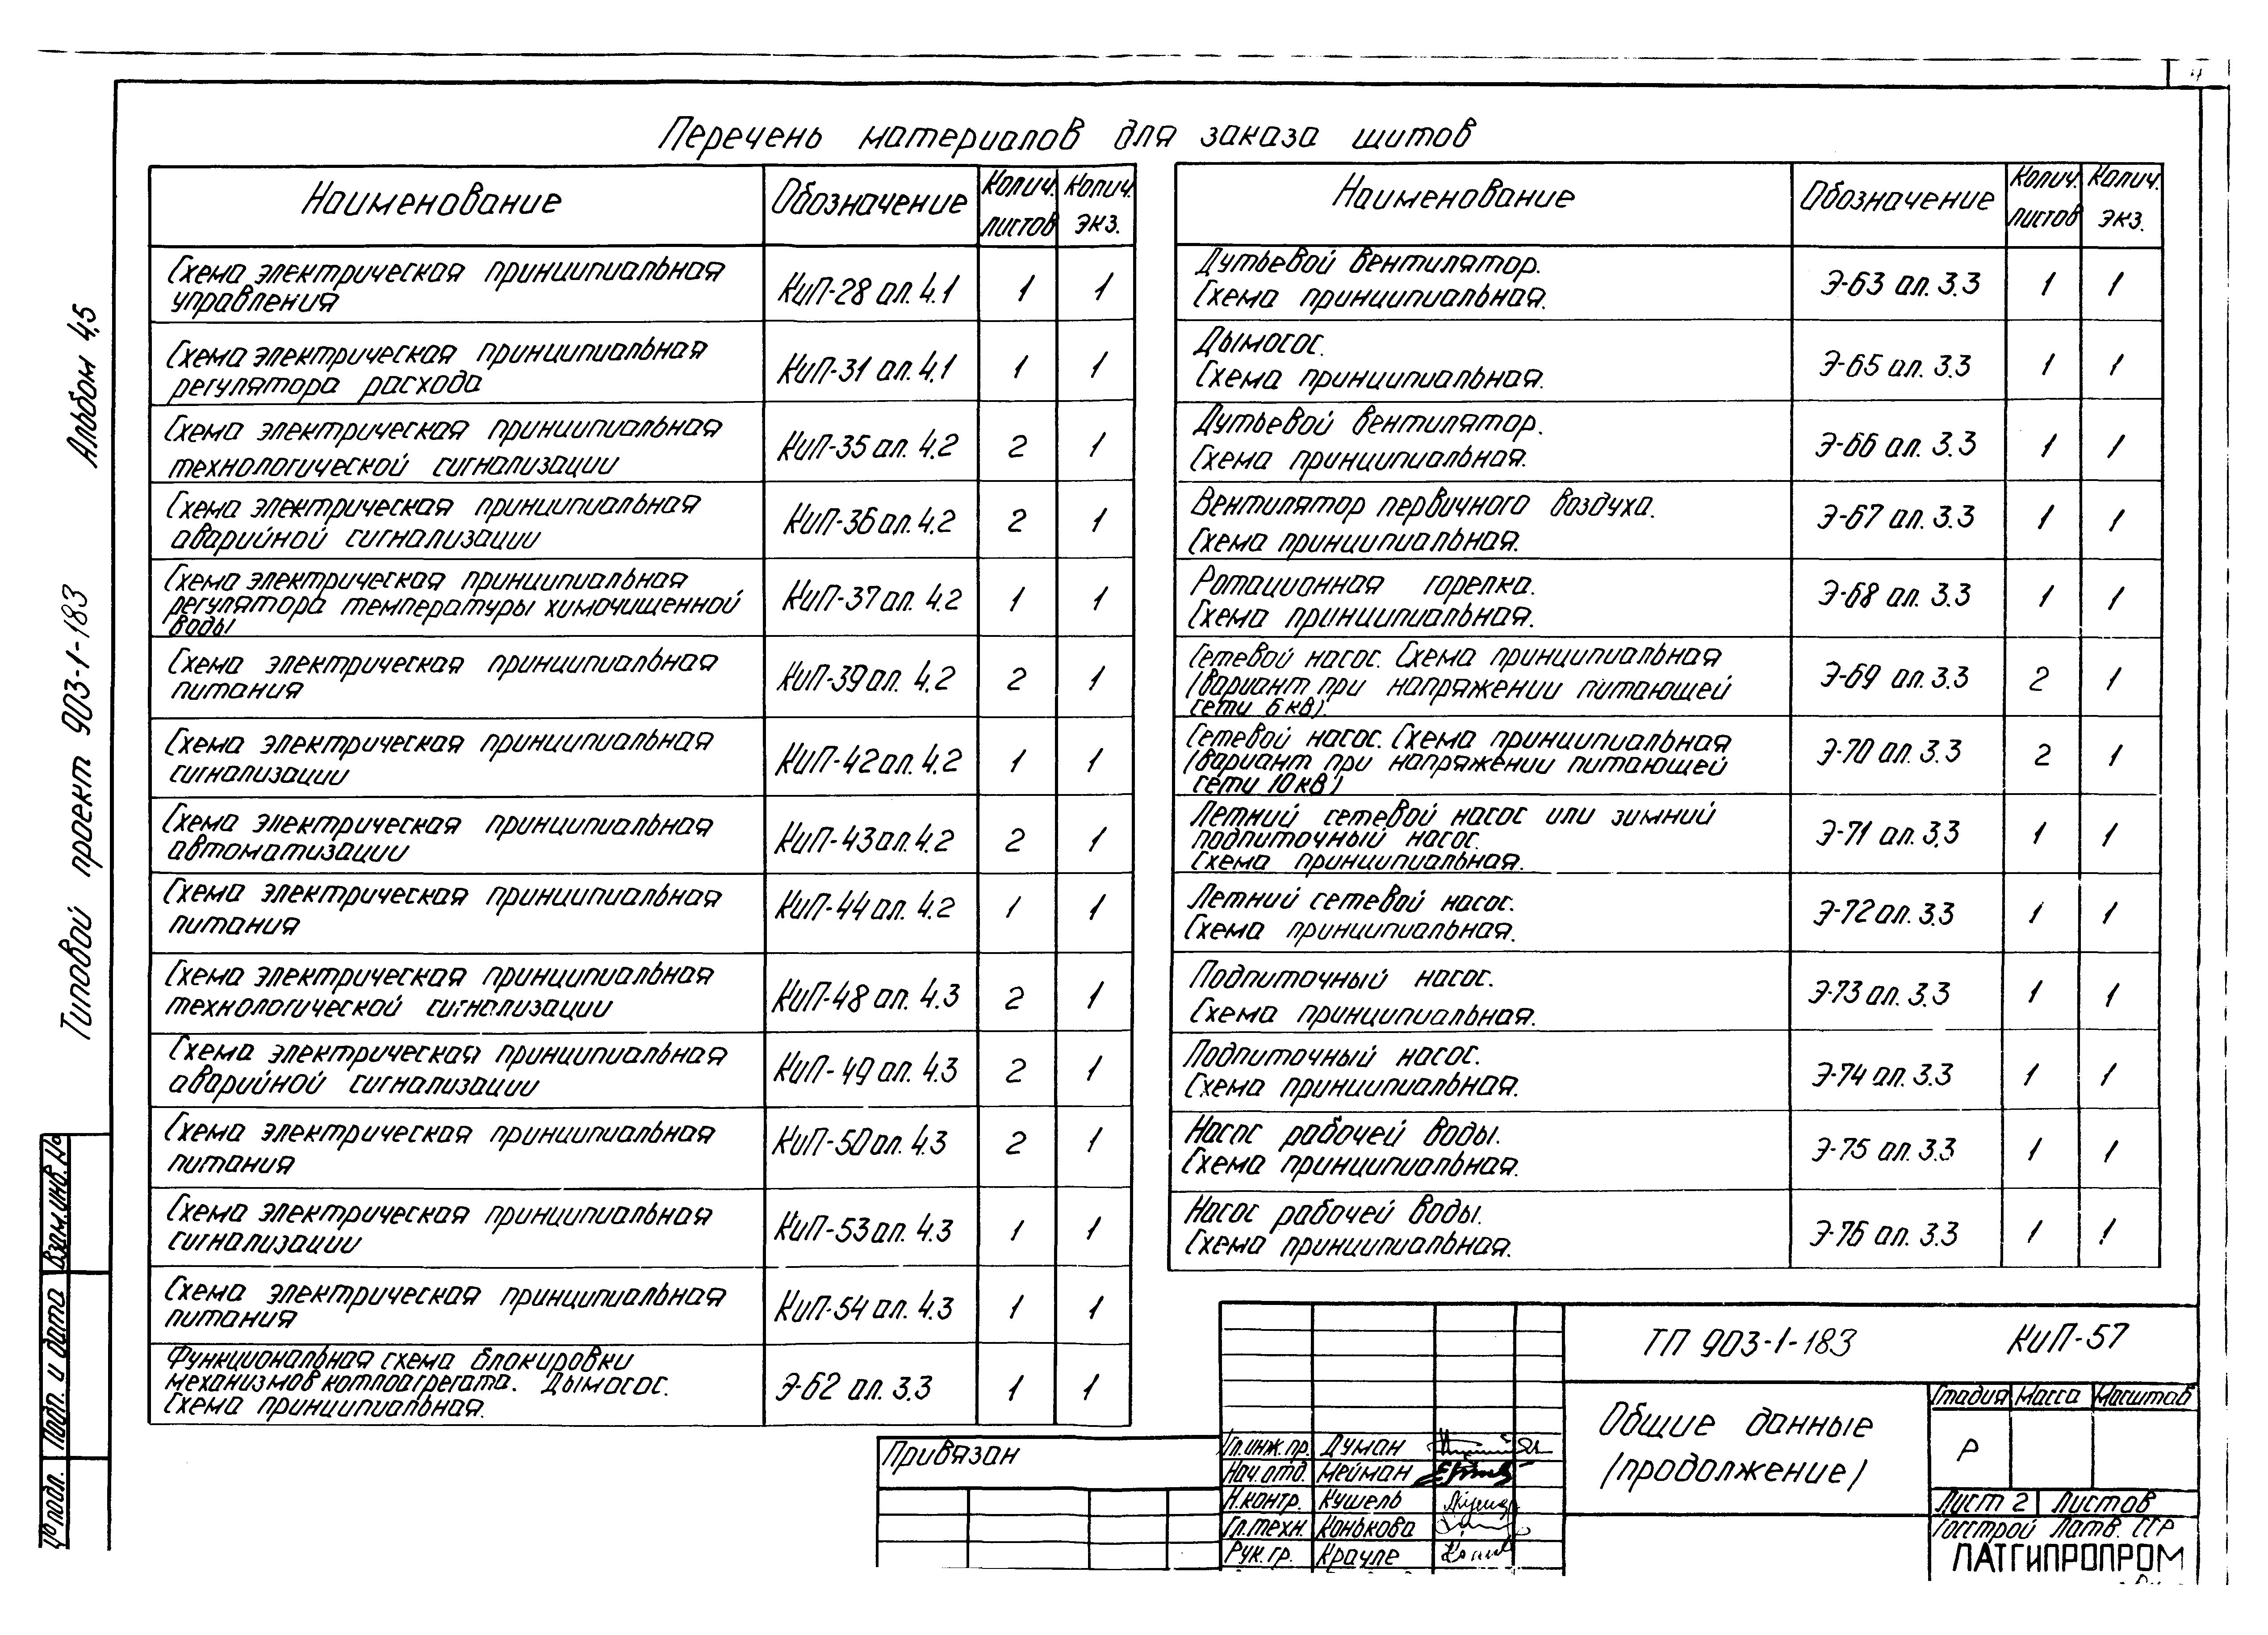 4
Перечень материалов для заказа щитов
Наименование Обозначение Колич. листов Колич. экз.
Схема электрическая принципиальная
управления КиП-28 ал. 4.1 1 1
Схема электрическая принципиальная
регулятора расхода КиП-31 ал. 4.1 1 1
Схема электрическая принципиальная
технологической сигнализации КиП-35 ал. 4.2 2 1
Схема электрическая принципиальная
аварийной сигнализации КиП-36 ал. 4.2 2 1
Схема электрическая принципиальная
регулятора температуры химочищенной
воды КиП-37 ал. 4.2 1 1
Схема электрическая принципиальная
питания КиП-39 ал. 4.2 2 1
Схема электрическая принципиальная
сигнализации КиП-42 ал. 4.2 1 1
Схема электрическая принципиальная
автоматизации КиП-43 ал. 4.2 2 1
Схема электрическая принципиальная
питания КиП-44 ал. 4.2 1 1
Схема электрическая принципиальная
технологической сигнализации КиП-48 ал. 4.3 2 1
Схема электрическая принципиальная
аварийной сигнализации КиП-49 ал. 4.3 2 1
Схема электрическая принципиальная
питания КиП-50 ал. 4.3 2 1
Схема электрическая принципиальная
сигнализации КиП-53 ал. 4.3 1 1
Схема электрическая принципиальная
питания КиП-54 ал. 4.3 1 1
Функциональная схема блокировки
механизмов котлоагрегата. Дымосос.
Схема принципиальная. Э-62 ал. 3.3 1 1
Наименование Обозначение Колич. листов Колич. экз.
Дутьевой вентилятор.
Схема принципиальная. Э-63 ал. 3.3 1 1
Дымосос.
Схема принципиальная. Э-65 ал. 3.3 1 1
Дутьевой вентилятор.
Схема принципиальная. Э-66 ал. 3.3 1 1
Вентилятор первичного воздуха.
Схема принципиальная. Э-67 ал. 3.3 1 1
Ротационная горелка.
Схема принципиальная. Э-68 ал. 3.3 1 1
Сетевой насос. Схема принципиальная
(вариант при напряжении питающей
сети 6 кв). Э-69 ал. 3.3 2 1
Сетевой насос. Схема принципиальная
(вариант при напряжении питающей
сети 10 кв) Э-70 ал. 3.3 2 1
Летний сетевой насос или зимний
подпиточный насос.
Схема принципиальная. Э-71 ал. 3.3 1 1
Летний сетевой насос.
Схема принципиальная. Э-72 ал. 3.3 1 1
Подпиточный насос.
Схема принципиальная. Э-73 ал. 3.3 1 1
Подпиточный насос.
Схема принципиальная. Э-74 ал. 3.3 1 1
Насос рабочей воды.
Схема принципиальная. Э-75 ал. 3.3 1 1
Насос рабочей воды.
Схема принципиальная. Э-76 ал. 3.3 1 1
Типовой проект 903-1-183 Альбом 4.5
Взам. инв. №
Подп. и дата
№ подл.
Привязан
Гл. инж. пр. Думан
Нач. отд. Мейман
Н. контр. Кушель
Гл. техн. Конькова
Рук. гр. Крауле
ТП 903-1-183 КиП-57
Общие данные
(продолжение)
Стадия Масса Масштаб
Р
Лист 2 Листов
Госстрой Латв. ССР
ЛАТГИПРОПРОМ